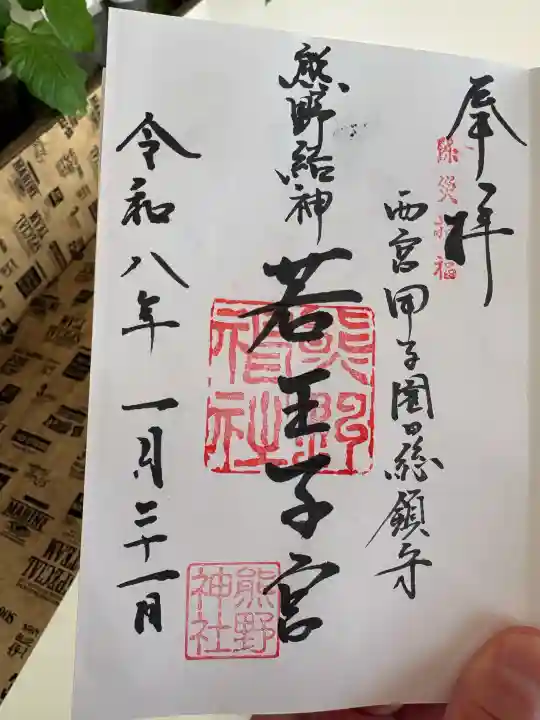 奉拝
除災招福
西宮甲子園口総鎮守
熊野結神
若王子宮
熊野神社
熊野神社
令和八年一月二十一日